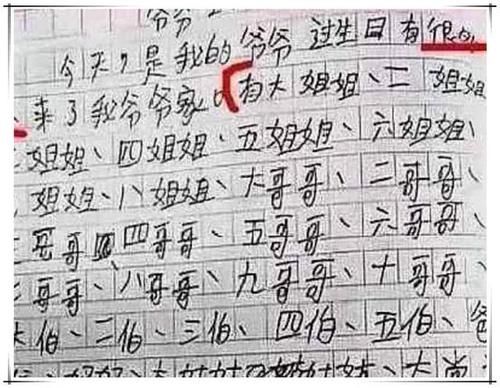 爷爷
今天，是我的爷爷过生日有很
来了我爷爷家。有大姐姐、二姐姐
姐姐、四姐姐、五姐姐、六姐姐、
姐姐、八姐姐、大哥哥、二哥哥、
哥哥四哥哥、五哥哥、六哥哥、
哥哥、八哥哥、九哥哥、十哥哥、
伯、二伯、三伯、四伯、五伯、爸